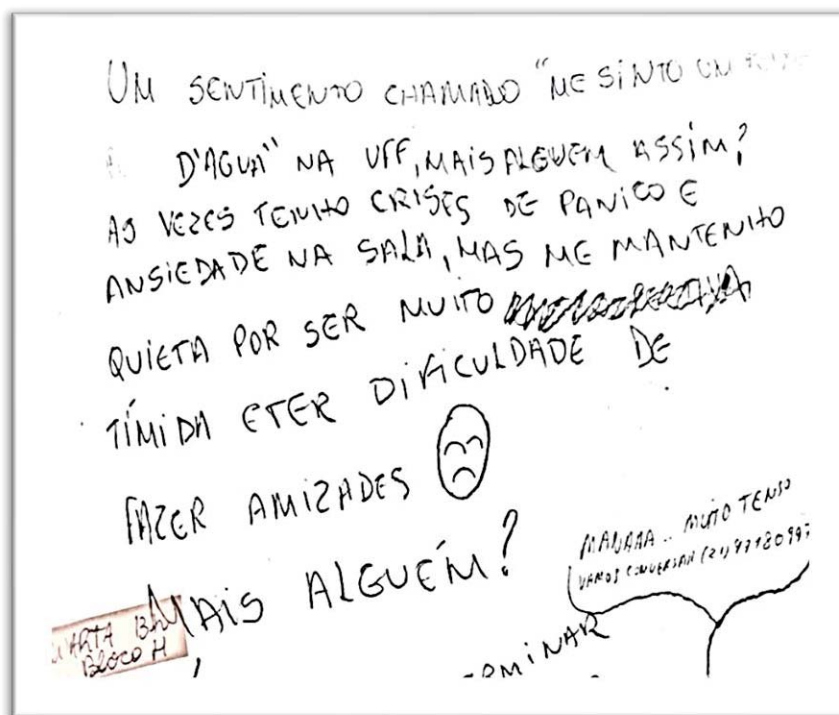 UM SENTIMENTO CHAMADO "ME SINTO UM
D'AGUA" NA UFF, MAIS ALGUEM ASSIM?
AS VEZES TENHO CRISES DE PANICO E
ANSIEDADE NA SALA, MAS ME MANTENHO
QUIETA POR SER MUITO
TÍMIDA E TER DIFICULDADE DE
FAZER AMIZADES
MAIS ALGUÉM?
MANAAA.. MUITO TENSO
VAMOS CONVERSAR (21)
Bloco H